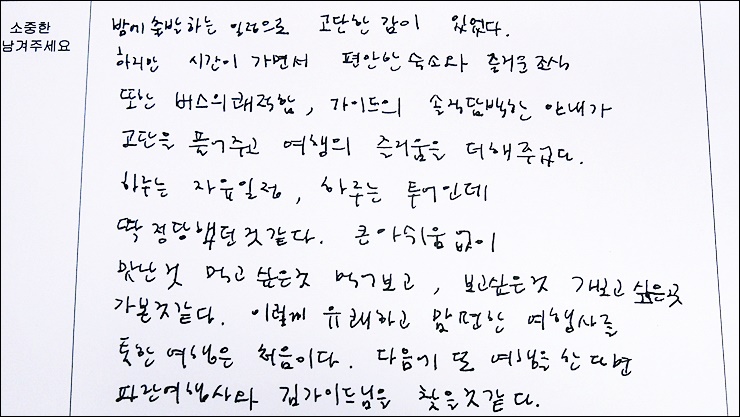 소중한
남겨주세요
밤에 출발하는 일정으로 고단한 감이 있었다.
하지만 시간이 가면서 편안한 숙소와 즐거운 조식
또한 버스의 쾌적함, 가이드의 솔직담백한 안내가
고단을 풀어주고 여행의 즐거움을 더해주었다.
하루는 자유일정, 하루는 투어인데
딱 적당했던것같다. 큰 아쉬움없이
맛난것 먹고싶은것 먹어보고, 보고싶은것 가보고싶은곳
가본것같다. 이렇게 유쾌하고 완전한 여행사를
통한 여행은 처음이다. 다음기 또 여행을 한다면
파란여행사와 김가이드님을 찾을것같다.